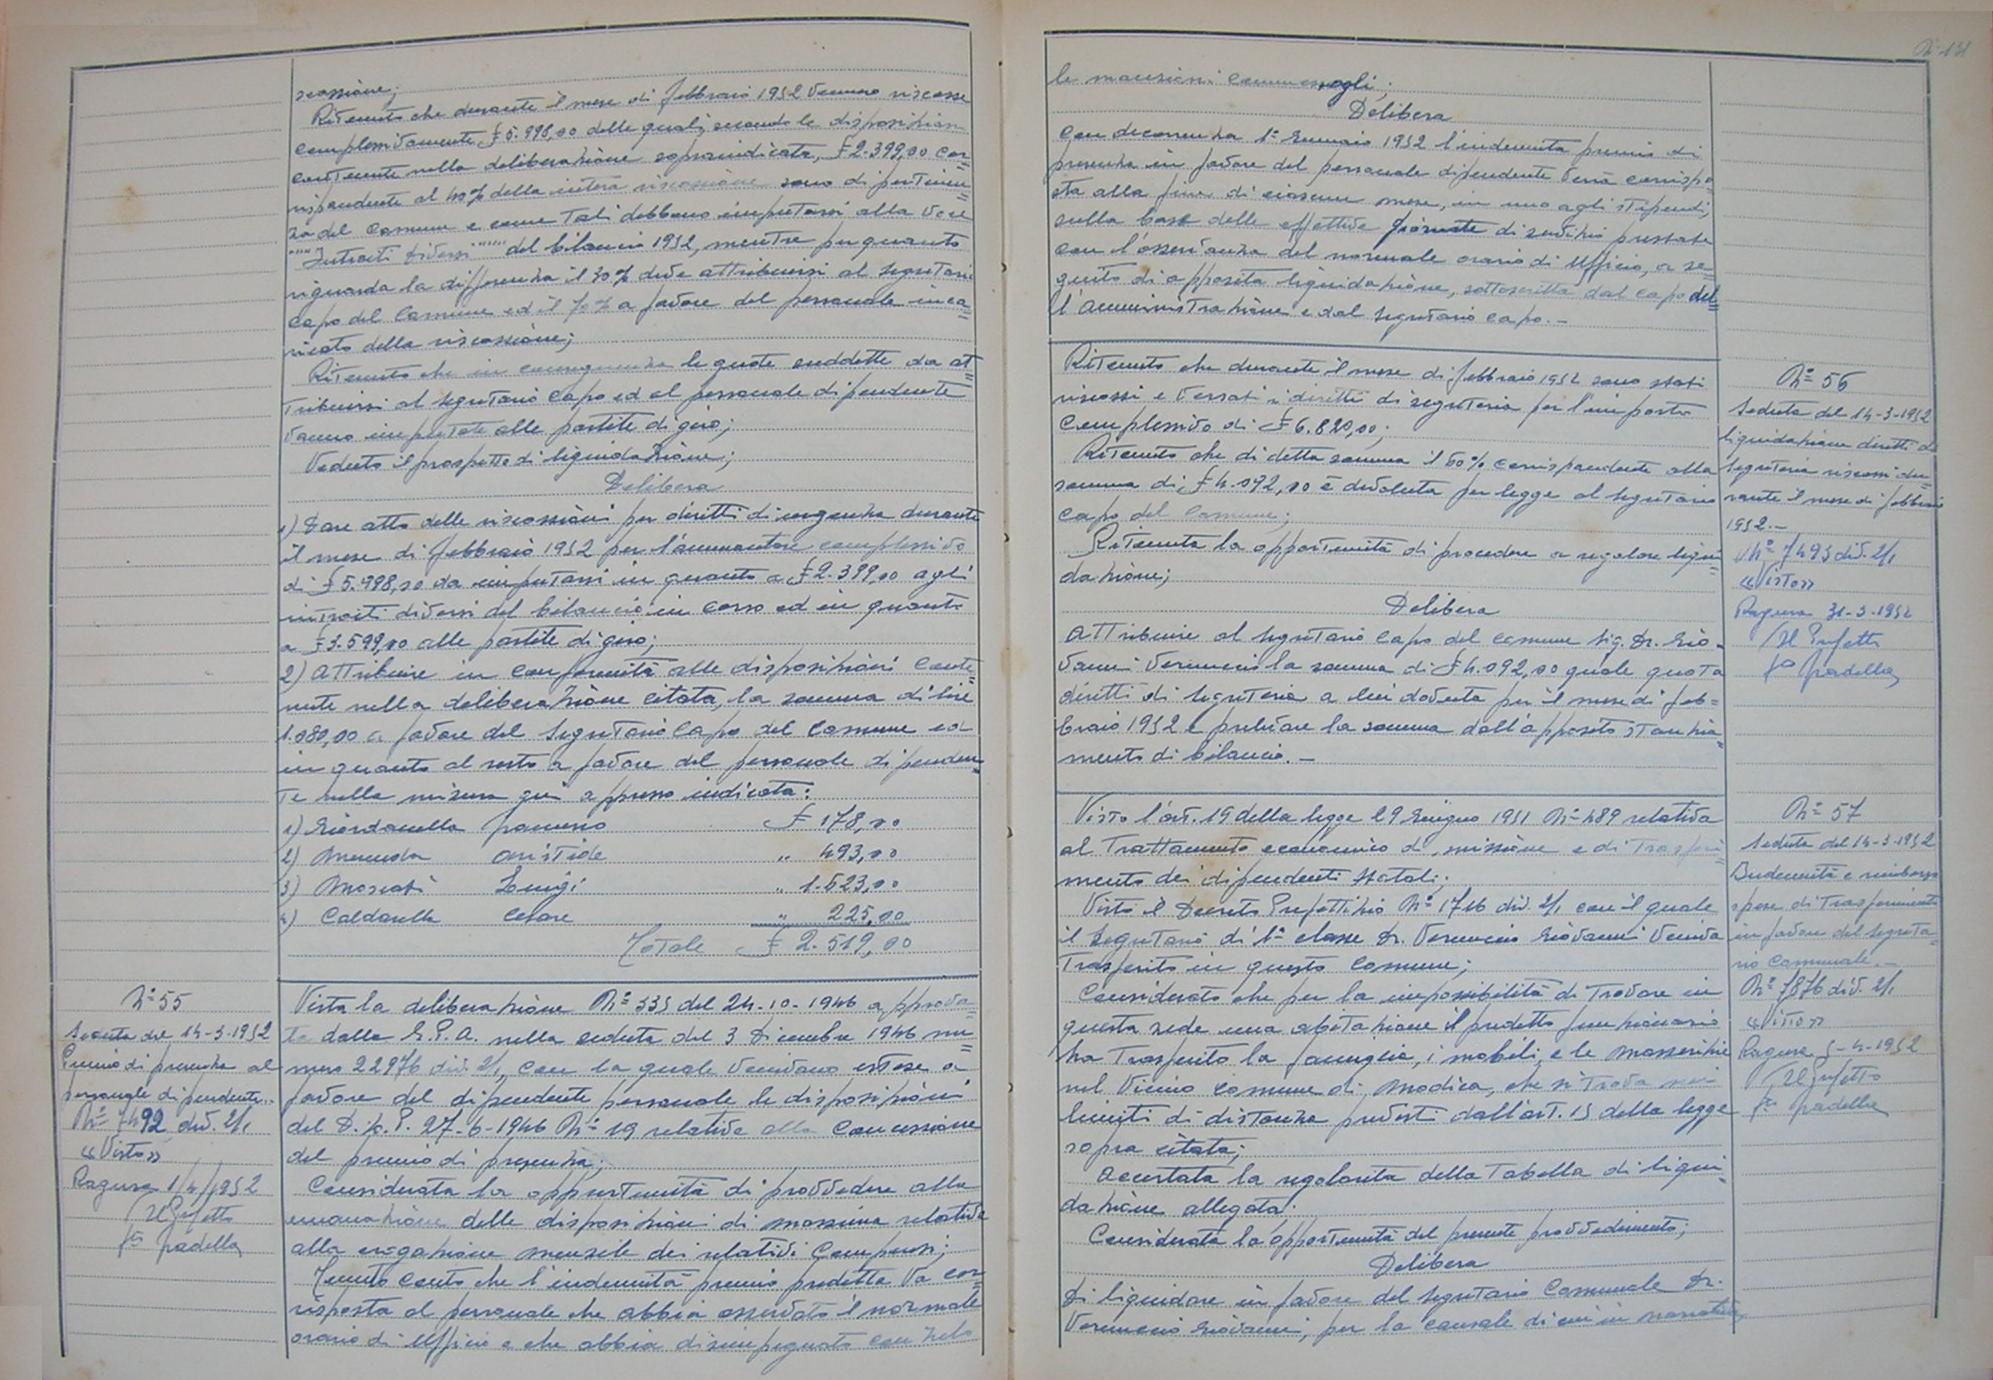 scossione;
Ritenuto che durante il mese di febbraio 1952 vennero riscosse
complessivamente £ 5.998,00 delle quali, secondo le disposizioni
contenute nella deliberazione sopraindicata, £ 2.399,00 cor=
rispondente al 40% della intera riscossione sono di pertinen=
za del Comune e come tali debbono imputarsi alla voce
""Introiti diversi"" del bilancio 1952, mentre per quanto
riguarda la differenza il 30% deve attribuirsi al Segretario
capo del Comune ed il 70% a favore del personale inca=
ricato della riscossione;
Ritenuto che in conseguenza le quote suddette da at=
tribuirsi al Segretario Capo ed al personale dipendente
vanno imputate alle partite di giro;
Veduto il prospetto di liquidazione;
Delibera
1) Dare atto delle riscossioni per diritti di urgenza durante
il mese di febbraio 1952 per l'ammontare complessivo
di £ 5.998,00 da imputarsi in quanto a £ 2.399,00 agli
introiti diversi del bilancio in corso ed in quanto
a £ 3.599,00 alle partite di giro;
2) Attribuire in conformità alle disposizioni conte=
nute nella deliberazione citata, la somma di lire
1.080,00 a favore del Segretario Capo del Comune ed
in quanto al resto a favore del personale dipenden=
te nella misura qui appresso indicata:
1) Giordanella £ 178,00
2) Merenda Aristide " 493,00
3) Moscati Luigi " 1.623,00
4) Caldarella Cesare " 225,00
Totale £ 2.519,00
N° 55
Seduta del 14-3-1952
Premio di presenza al
personale dipendente.
N° 7492 div. 2/1
«Visto»
Ragusa 1/4/1952
Il Prefetto
fto Padella
Vista la deliberazione N° 335 del 24-10-1946 approva=
ta dalla G.P.A. nella seduta del 3 Dicembre 1946 nu=
mero 22976 div. 2/1, con la quale venivano estese a
favore del dipendente personale le disposizioni
del D.P. 27-6-1946 N° 19 relative alla concessione
del premio di presenza;
Considerata la opportunità di provvedere alla
emanazione delle disposizioni di massima relative
alla erogazione mensile dei relativi compensi;
Tenuto conto che l'indennità premio predetta va cor=
risposta al personale che abbia osservato il normale
orario di Ufficio e che abbia disimpegnato con zelo
N° 131
le mansioni commessegli;
Delibera
Con decorrenza 1° Gennaio 1952 l'indennità premio di
presenza in favore del personale dipendente verrà corrispo=
sta alla fine di ciascun mese, in uno agli stipendi,
sulla base delle effettive giornate di servizio prestate
con l'osservanza del normale orario di Ufficio, a se=
guito di apposita liquidazione, sottoscritta dal capo del=
l'Amministrazione e dal Segretario capo.-
Ritenuto che durante il mese di febbraio 1952 sono stati
riscossi e versati i diritti di segreteria per l'importo
complessivo di £ 6.820,00;
Ritenuto che di detta somma il 60% corrispondente alla
somma di £ 4.092,00 è devoluta per legge al Segretario
capo del Comune;
Ritenuta la opportunità di procedere a regolare liqui=
dazione;
Delibera
Attribuire al Segretario capo del Comune Sig. Dr. Gio=
vanni Vernuccio la somma di £ 4.092,00 quale quota
diritti di Segreteria a lui dovuta per il mese di feb=
braio 1952 e prelevare la somma dall'apposito stanzia=
mento di bilancio.-
N° 56
Seduta del 14-3-1952
liquidazione diritti di
Segreteria riscossi du=
rante il mese di febbraio
1952.-
N° 7493 div. 2/1
«Visto»
Ragusa 31-3-1952
Il Prefetto
fto Padella
Visto l'art. 19 della legge 29 Giugno 1951 N° 489 relativa
al trattamento economico di missione e di trasferi=
mento dei dipendenti statali;
Visto il Decreto Prefettizio N° 1716 div. 2/1 con il quale
il Segretario di 1° classe Dr. Vernuccio Giovanni veniva
trasferito in questo Comune;
Considerato che per la impossibilità di trovare in
questa sede una abitazione il predetto funzionario
ha trasferito la famiglia, i mobili, e le masserizie
nel vicino Comune di Modica, che si trova nei
limiti di distanza previsti dall'art. 15 della legge
sopra citata;
Accertata la regolarità della tabella di liqui=
dazione allegata.
Considerata la opportunità del presente provvedimento;
Delibera
Di liquidare in favore del Segretario Comunale Dr.
Vernuccio Giovanni, per la causale di cui in narrativa
N° 57
Seduta del 14-3-1952
Indennità e rimborso
spese di trasferimento
in favore del Segreta=
rio Comunale.-
N° 7876 div. 2/1
«Visto»
Ragusa 5-4-1952
Il Prefetto
fto Padella